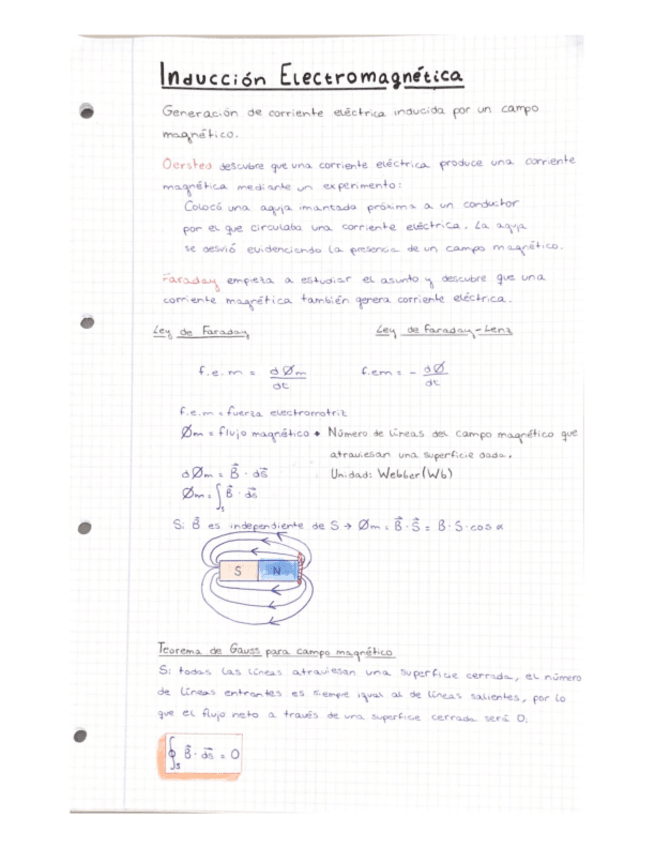 Inducción Electromagnética
Generación de corriente eléctrica inducida por un campo
magnético.
Oersted descubre que una corriente eléctrica produce una corriente
magnética mediante un experimento:
Colocó una aguja imantada próxima a un conductor
por el que circulaba una corriente eléctrica. La aguja
se desvió evidenciando la presencia de un campo magnético.
Faraday empieza a estudiar el asunto y descubre que una
corriente magnética también genera corriente eléctrica.
Ley de Faraday
Ley de Faraday-Lenz
f.e.m = dØm/dt
f.em = - dØ/dt
f.e.m = fuerza electromotriz
Øm = flujo magnético • Número de líneas del campo magnético que
atraviesan una superficie dada.
dØm = B⃗ · ds⃗
Unidad: Webber (Wb)
Øm = ∫s B⃗ · ds⃗
Si B⃗ es independiente de S → Øm = B⃗ · S⃗ = B · S · cos α
S N
Teorema de Gauss para campo magnético
Si todas las líneas atraviesan una superficie cerrada, el número
de líneas entrantes es siempre igual al de líneas salientes, por lo
que el flujo neto a través de una superficie cerrada será 0.
∮s B⃗ · ds⃗ = 0